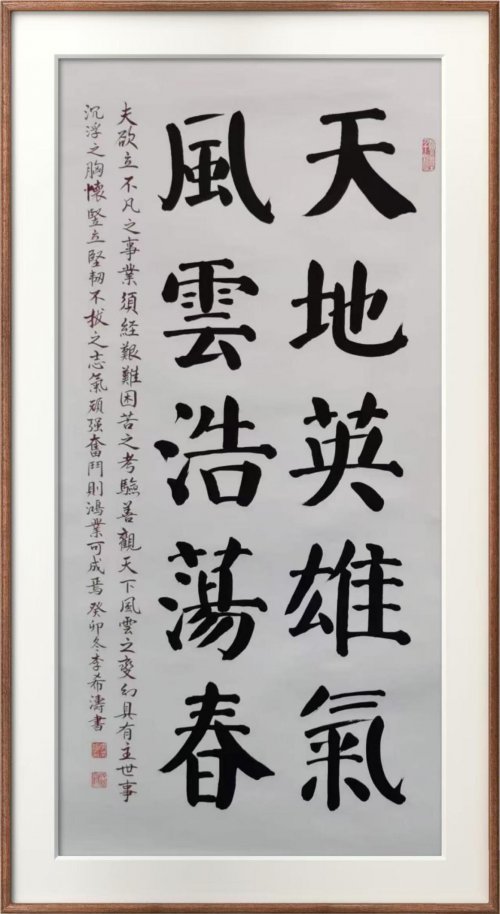 天地英雄氣
風雲浩蕩春
夫欲立不凡之事業須經艱難困苦之考驗善觀天下風雲之變幻具有主世事
沉浮之胸懷豎立堅韌不拔之志氣頑强奮鬥則鴻業可成焉癸卯冬李希濤書